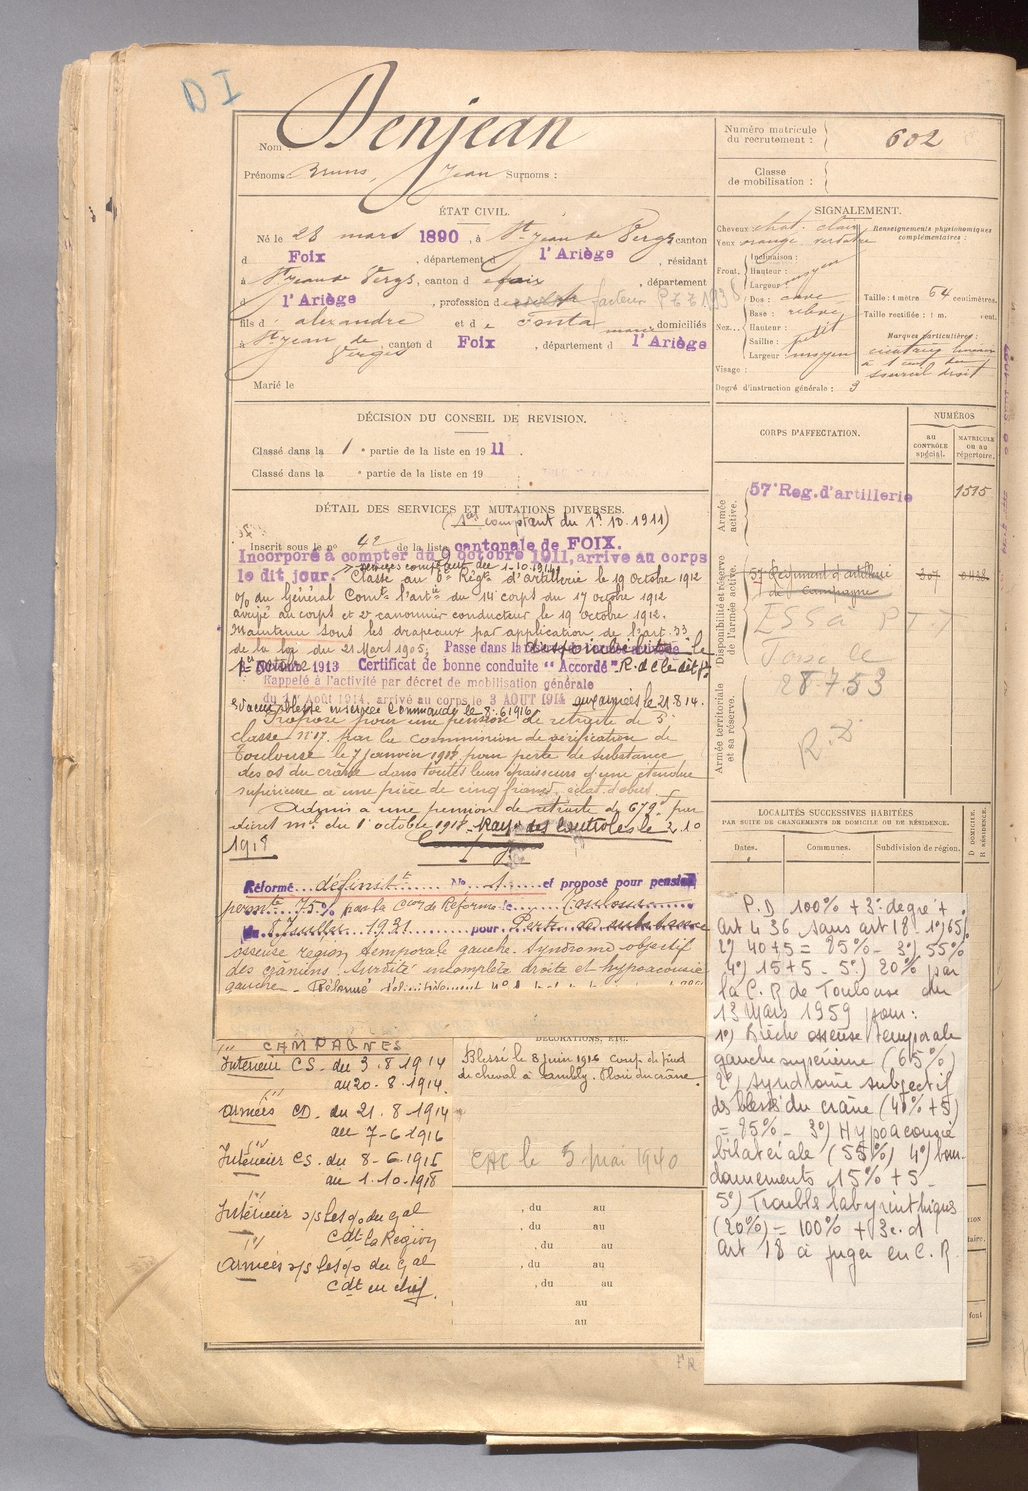 D I
Nom : Denjean
Prénoms : Bruno, Jean Surnoms :
Numéro matricule
du recrutement : 602
Classe
de mobilisation :
ÉTAT CIVIL.
Né le 28 mars 1890, à St Jean de Verges canton
d Foix, département d l'Ariège, résidant
à St Jean de Verges, canton d Foix, département
d l'Ariège, profession d facteur P T T 1938
fils d' alexandre et d e Fonta marie domiciliés
à St Jean de Verges, canton d Foix, département d l'Ariège
Marié le
SIGNALEMENT.
Cheveux chat. clair
Yeux orange verdâtre
Front. Inclinaison :
Hauteur : moyen
Largeur :
Nez... Dos : cave
Base : relevé
Hauteur :
Saillie : petit
Largeur : moyen
Visage :
Degré d'instruction générale : 3
Renseignements physionomiques
complémentaires :
Taille : 1 mètre 64 centimètres.
Taille rectifiée : 1 m. cent.
Marques particulières :
cicatrice
à 1 cent. du
sourcil droit
DÉCISION DU CONSEIL DE REVISION.
Classé dans la 1e partie de la liste en 1911.
Classé dans la e partie de la liste en 19
CORPS D'AFFECTATION.
NUMÉROS
AU
CONTRÔLE
spécial.
MATRICULE
OU AU
répertoire.
Armée
active.
57e Reg. d'artillerie 1515
Disponibilité et réserve
de l'armée active.
57 Régiment d'artillerie
de Campagne
ESSA P T T
Toulouse
28.7.53
Armée territoriale
et sa réserve.
R. D.
DÉTAIL DES SERVICES ET MUTATIONS DIVERSES.
(comptant du 1er 10.1911)
Inscrit sous le no 42 de la liste cantonale de FOIX.
Incorporé à compter du 9 octobre 1911, arrive au corps
services comptent du 1-10.1911
le dit jour. Classé au 6e Régt d'artillerie le 19 Octobre 1912
% du Général Comt l'artie du 14e corps du 17 octobre 1912
arrivé au corps et 2e canonnier conducteur le 19 octobre 1912.
Maintenu sous les drapeaux par application de l'art. 33
de la loi du 21 Mars 1905. Passé dans la disponibilité le
1913 Certificat de bonne conduite "Accordé" R. de le dit jr
Rappelé à l'activité par décret de mobilisation générale
du 1er Août 1914, arrivé au corps le 3 AOUT 1914 aux armées le 21.8.14.
Evacué blessé Commandé le 8.6.1916
Proposé pour une pension de retraite de 5e
classe no 17 par la commission de vérification de
Toulouse le 7 janvier 1918 pour perte de substance
des os du crâne dans toute leur épaisseur d'une étendue
supérieure à une pièce de cinq francs, éclat d'obus
Admis à une pension de retraite de 679f par
décret mel du 1er octobre 1918. Rayé des Contrôles le 3.10
1918
Réformé définitt No 1 et proposé pour pension
permte 75% par la Con de Réforme de Toulouse
du 8 Juillet 1931 pour Perte de substance
osseuse région temporale gauche. Syndrome objectif
des crâniens. Surdité incomplète droite et hypoacousie
gauche
LOCALITÉS SUCCESSIVES HABITÉES
PAR SUITE DE CHANGEMENTS DE DOMICILE OU DE RÉSIDENCE.
Dates.
Communes.
Subdivision de région.
D DOMICILE.
R RÉSIDENCE.
P.D 100% + 3e degré +
Art 4 36 sans art 18. 1o) 65%
2o) 40+5 = 85% - 3o) 55%
4o) 15+5 - 5o) 20% par
la C.R de Toulouse du
13 Mars 1959 pour :
1o) Brèche osseuse temporale
gauche supérieure (65%)
2o) Syndrome subjectif
des blessés du crâne (40%+5)
= 85% - 3o) Hypoacousie
bilatérale (55%) 4o) bour-
donnements 15% + 5 -
5o) Trouble labyrinthiques
(20%) = 100% + 3e. d
art 18 à juger en C.R.
CAMPAGNES
Intérieur CS. du 3.8.1914
au 20.8.1914.
Armées CD. du 21.8.1914
au 7-6-1916
Intérieur CS. du 8-6-1916
au 1.10.1918
Intérieur s/s les % du Gal
Cdt la Région
Armées s/s les % du Gal
Cdt en chef.
DÉCORATIONS, ETC.
Blessé le 8 juin 1916 coup de pied
de cheval à Plaie du crâne
CAC le 5 mai 1940
, du au
, du au
, du au
, du au
au
au
FR